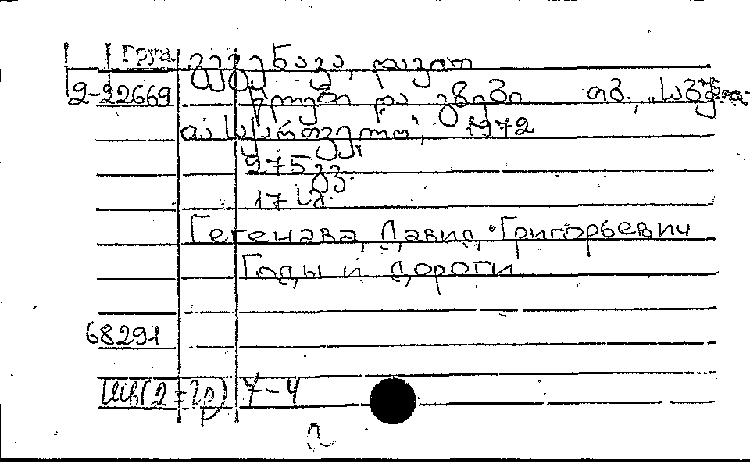 Груз. გეგენავა, დავით
2-22669 წლები და გზები თბ., „საბჭო-
თა საქართველო“, 1972
275 გვ.
17 სმ.
Гегенава, Давид Григорьевич
Годы и дороги
68291
7-4